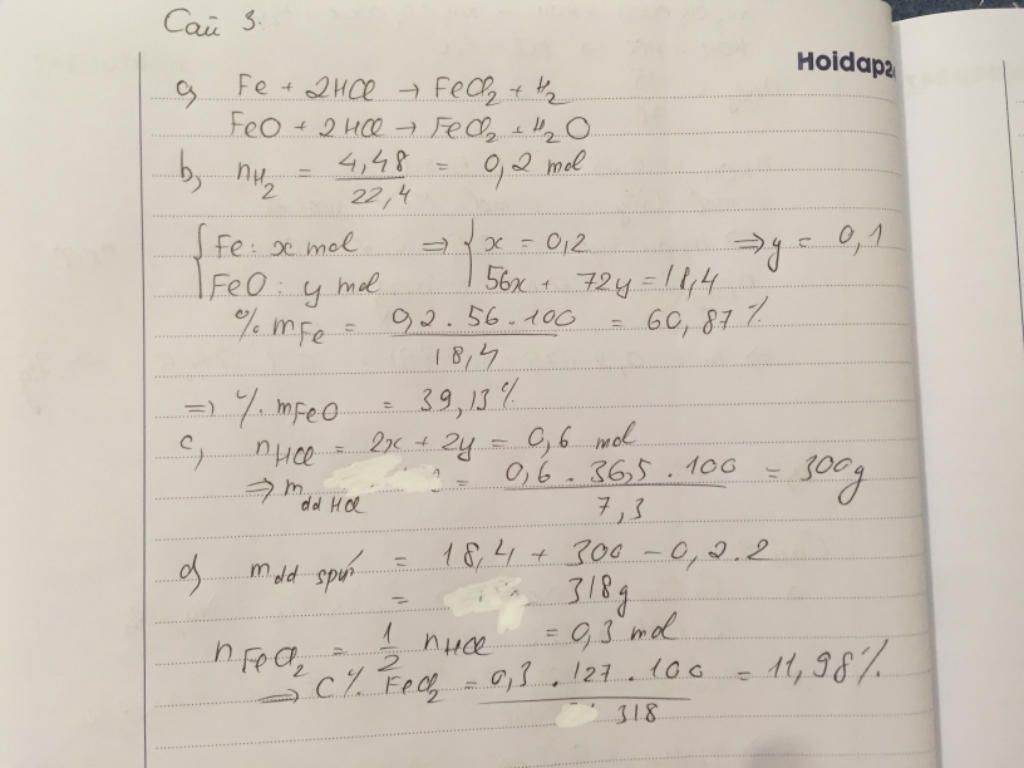 Câu 3.
Hoidap2
a, Fe + 2HCl → FeCl₂ + H₂
FeO + 2HCl → FeCl₂ + H₂O
b, nH₂ = 4,48/22,4 = 0,2 mol
{ Fe: x mol ⇒ { x = 0,2 ⇒ y = 0,1
FeO: y mol 56x + 72y = 18,4
% mFe = 0,2 . 56 . 100 / 18,4 = 60,87 %
=) %. mFeO = 39,13 %
c, nHCl = 2x + 2y = 0,6 mol
⇒ m dd HCl = 0,6 . 36,5 . 100 / 7,3 = 300g
d, m dd spứ = 18,4 + 300 - 0,2.2
= 318g
n FeCl₂ = 1/2 nHCl = 0,3 mol
⇒ C% FeCl₂ = 0,3 . 127 . 100 / 318 = 11,98%